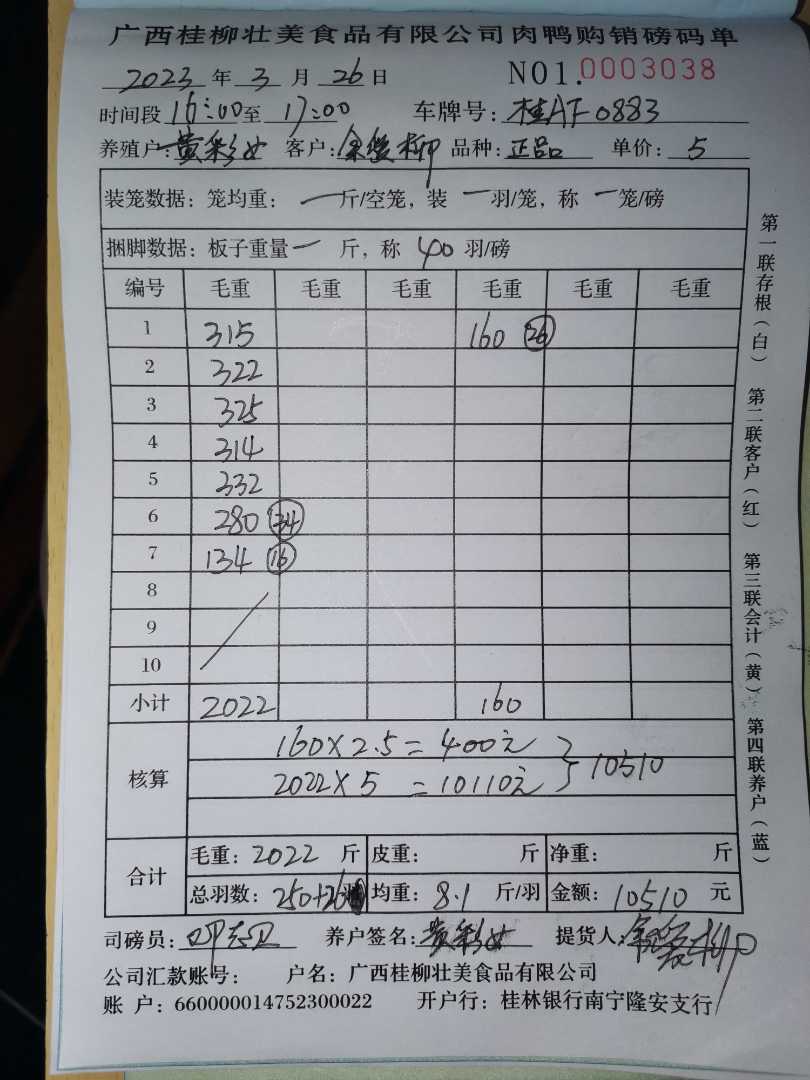 广西桂柳壮美食品有限公司肉鸭购销磅码单
2023 年 3 月 26 日 NO1.0003038
时间段 16:00 至 17:00 车牌号: 桂AF0883
养殖户: 黄彩女 客户: 柳 品种: 正品 单价: 5
装笼数据: 笼均重: 一 斤/空笼, 装 一 羽/笼, 称 一 笼/磅
捆脚数据: 板子重量 一 斤, 称 40 羽/磅
编号 毛重 毛重 毛重 毛重 毛重 毛重
1 315 160 26
2 322
3 325
4 314
5 332
6 280 34
7 134 16
8
9
10
小计 2022 160
核算 160×2.5=400元
2022×5=10110元 } 10510
合计 毛重: 2022 斤 皮重: 斤 净重: 斤
总羽数: 250+26 均重: 8.1 斤/羽 金额: 10510 元
司磅员: 养户签名: 黄彩女 提货人: 柳
公司汇款账号: 户名: 广西桂柳壮美食品有限公司
账 户: 660000014752300022 开户行: 桂林银行南宁隆安支行
第一联存根(白)
第二联客户(红)
第三联会计(黄)
第四联养户(蓝)